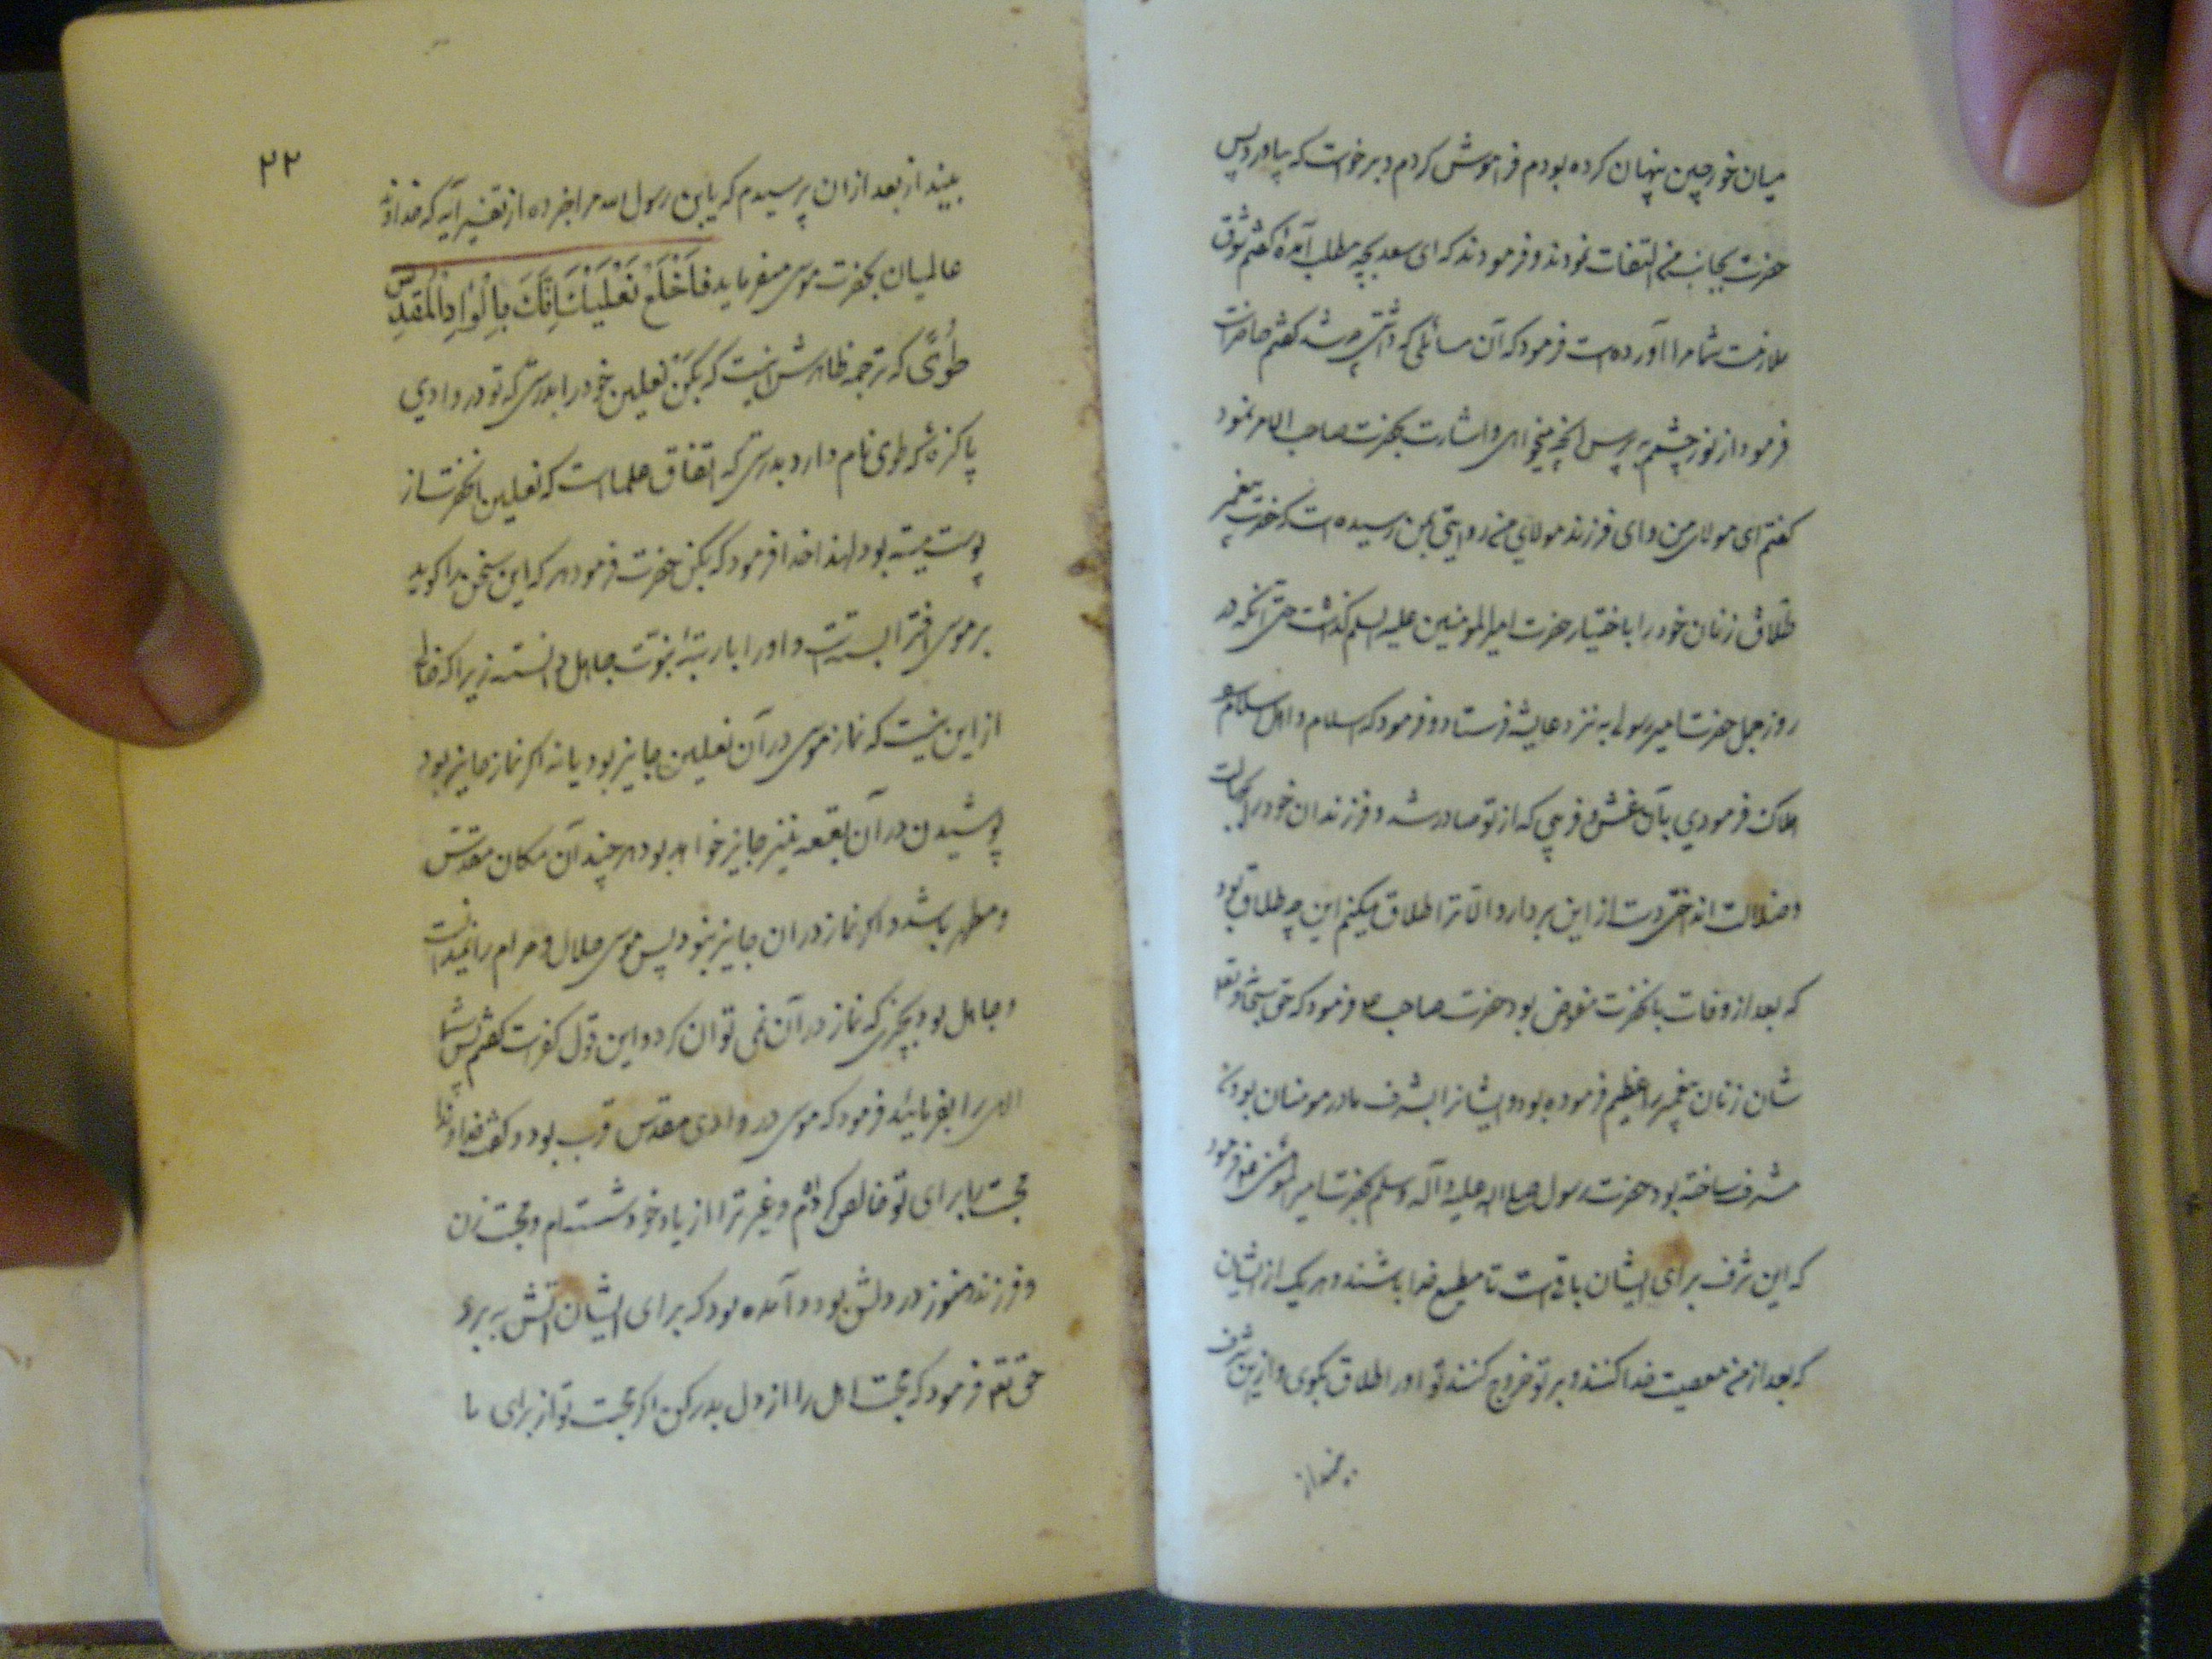 میان خورجین پنهان کرده بودم فراموش کردم و برخواست که بیاورد پس
حضرت بجانب من التفات نمودند و فرمودند که ای سعد بچه مطلب آمدهٔ گفتم شوق
ملازمت شما مرا آورده است فرمود که آن مسائلی که داشتی چه شد گفتم حاضر است
فرمود از نور چشمم بپرس آنچه میخواهی و اشارت بحضرت صاحب الامر نمود
گفتم ای مولای من و ای فرزند مولای من روایتی بمن رسیده است که حضرت پیغمبر
طلاق زنان خود را باختیار حضرت امیرالمومنین علیه السلم گذاشت حتی آنکه در
روز جمل حضرت امیر رسولی به نزد عایشه فرستاد و فرمود که اسلام و اهل اسلام را
هلاک فرمودی بآن غش و فریبی که از تو صادر شد و فرزندان خود را بجهالت
و ضلالت انداختی دست از این بردار و الا ترا طلاق میکنم این چه طلاق بود
که بعد از وفات بآنحضرت مفوض بود حضرت صاحب ع فرمود که حق سبحانه و تعالی
شان زنان پیغمبر را عظیم فرموده بود و ایشانرا بشرف مادر مومنان بودن
مشرف ساخته بود حضرت رسول صلی الله علیه و آله و سلم بحضرت امیر المومنین ع فرمود
که این شرف برای ایشان باقیست تا مطیع خدا باشند و هر یک از ایشان
که بعد از من معصیت خدا کنند و بر تو خروج کنند تو او را طلاق بگوی و ازین شرف
بینداز
۲۲
بینداز بعد از ان پرسیدم که یابن رسول الله مرا خبر ده از تفسیر آیه که خداوند
عالمیان بحضرت موسی میفرماید فَاخْلَعْ نَعْلَیْکَ اِنَّکَ بِالْوَادِ الْمُقَدَّسِ
طُوًی که ترجمه ظاهرش اینست که بکن نعلین خود را بدرستی که تو در وادی
پاکیزهٔ که طوی نام دارد بدرستی که اتفاق علماست که نعلین آنحضرت از
پوست میته بود لهذا خدا فرمود که بکن حضرت فرمود هر که این سخن را گوید
بر موسی افترا بسته است و او را با رتبهٔ نبوت جاهل دانسته زیرا که خالی
از این نیست که نماز موسی در آن نعلین جایز بود یا نه اگر نماز جایز بود
پوشیدن در آن بقعه نیز جایز خواهد بود هر چند آن مکان مقدس
و مطهر باشد و اگر نماز در ان جایز نبود پس موسی حلال و حرام را نمیدانست
و جاهل بود بچیزی که نماز در آن نمی توان کرد و این قول کفر است گفتم پس شما
الامر را بفرمائید فرمود که موسی در وادی مقدس قرب بود و گفت خداوندا
محبت را برای تو خالص کردم و غیر ترا از یاد خود شسته ام و محبت زن
و فرزند هنوز در دلش بود و آمده بود که برای ایشان آتش ببرد
حق تعم فرمود که محبت اهل را از دل بدر کن اگر محبت تو از برای ما